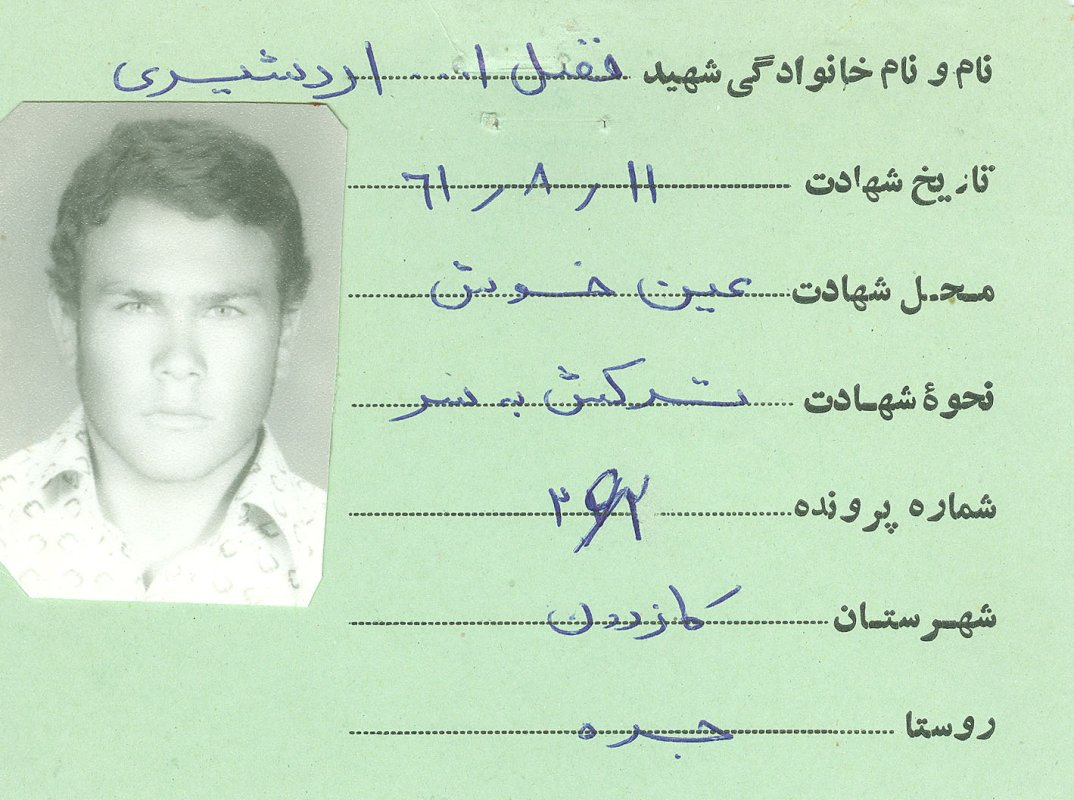 نام و نام خانوادگی شهید فضل ا... اردشیری
تاریخ شهادت ۱۱ / ۸ / ۶۱
محل شهادت عین خوش
نحوهٔ شهادت ترکش به سر
شماره پرونده
شهرستان کازرون
روستا جره